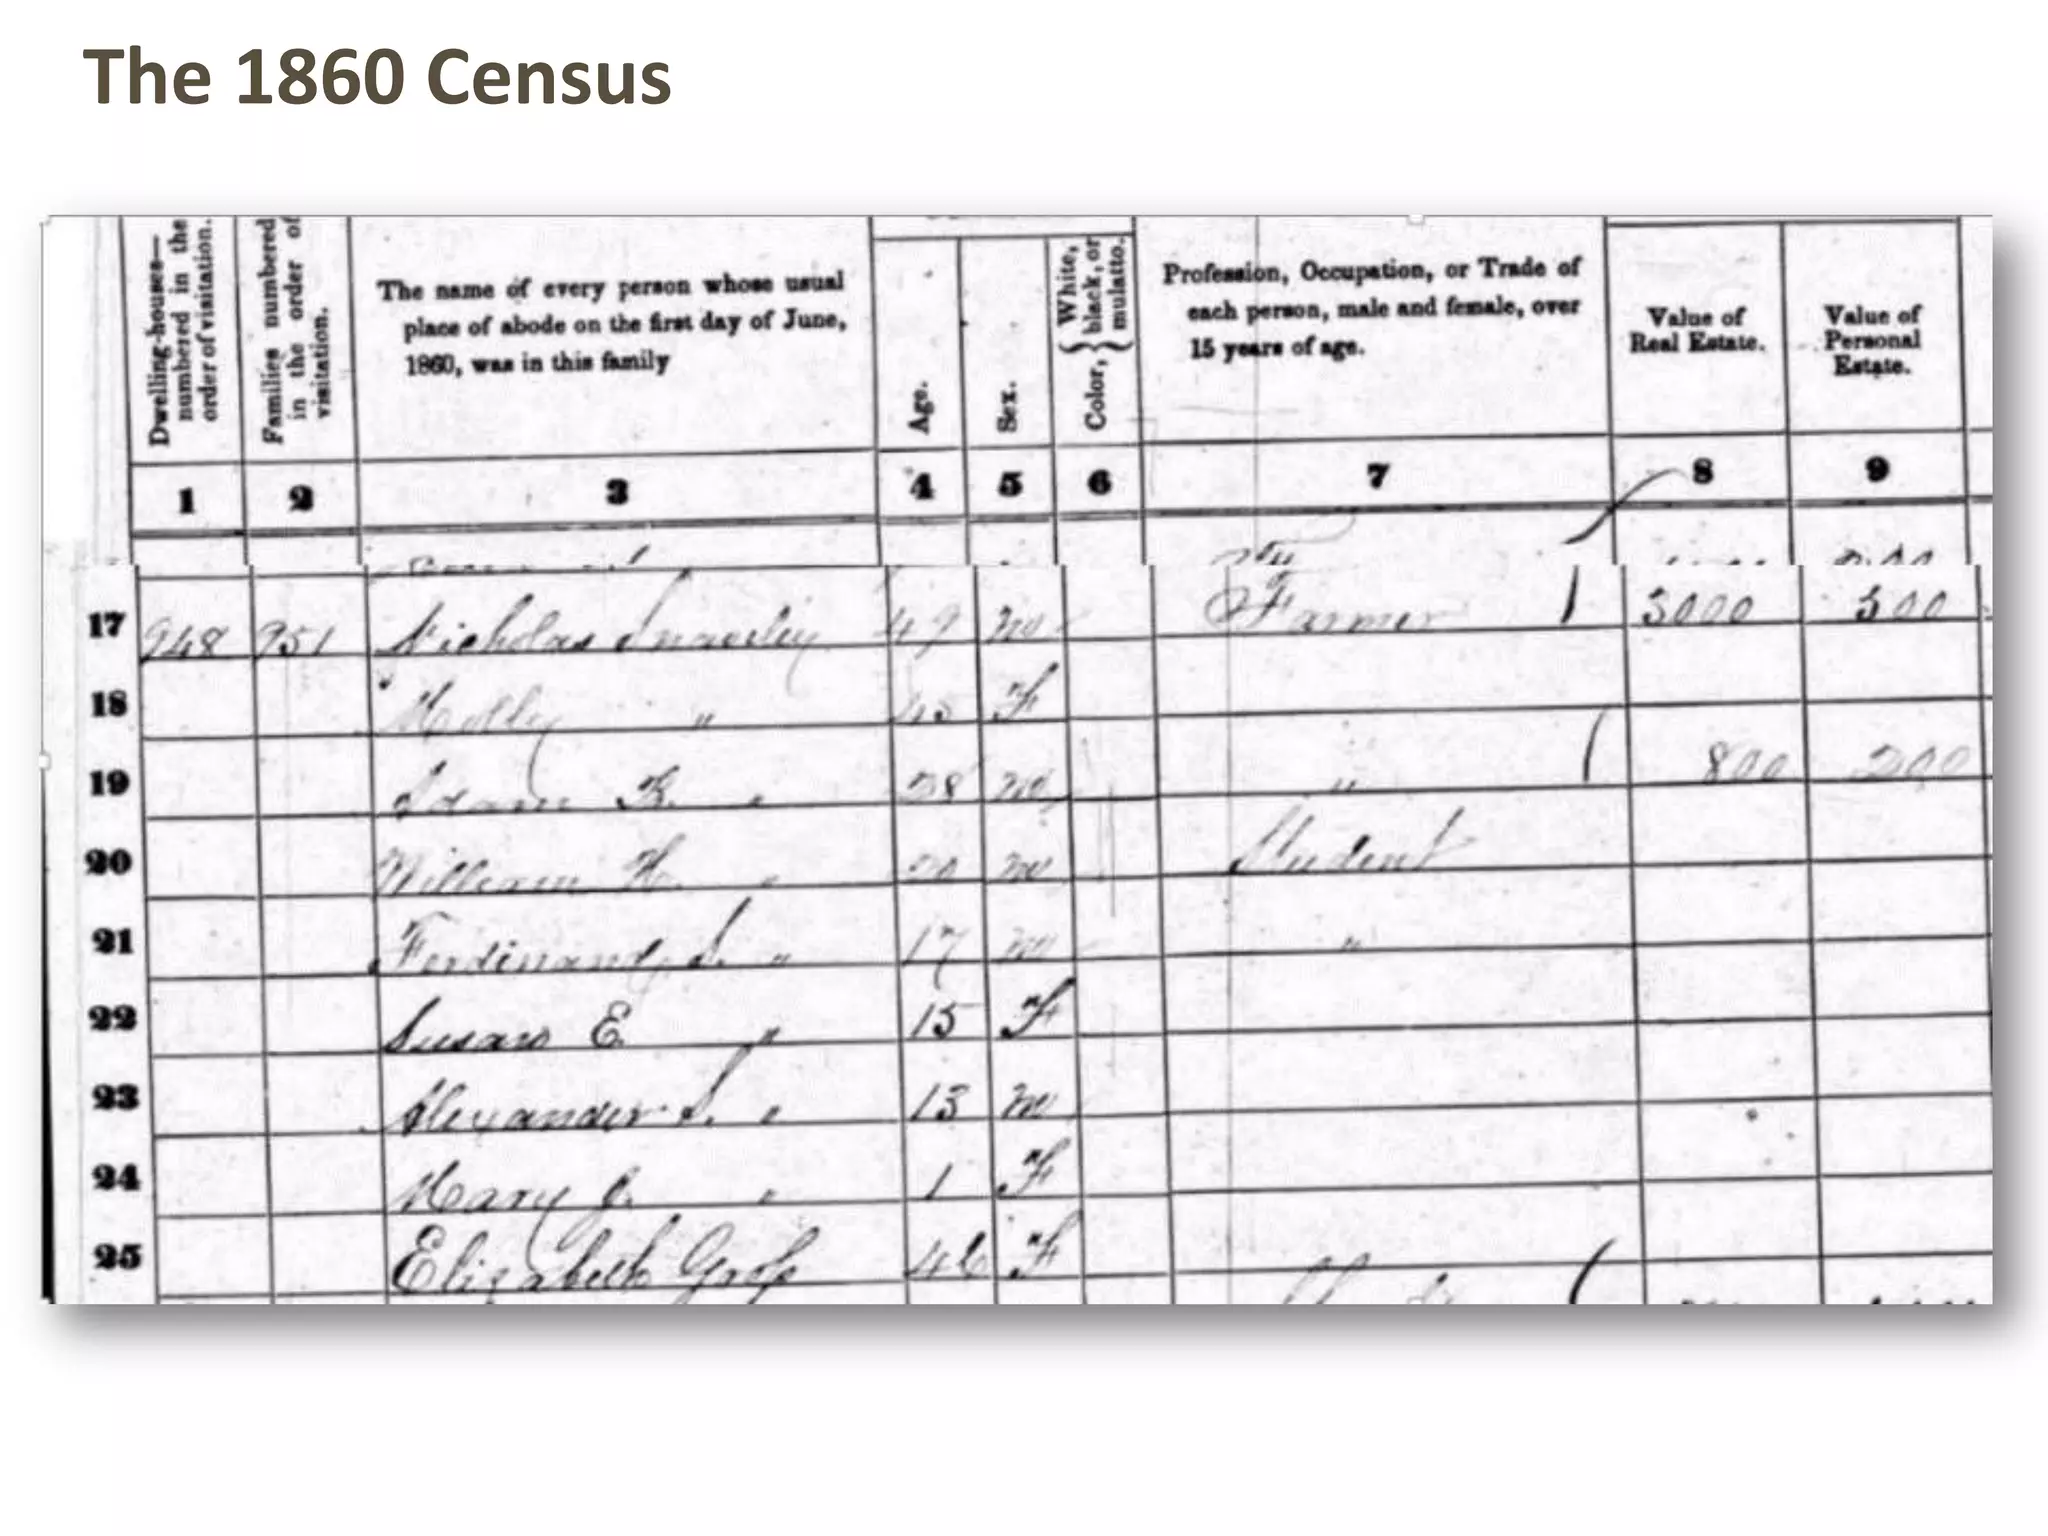 The 1860 Census
Dwelling-houses— numbered in the order of visitation.
Families numbered in the order of visitation.
The name of every person whose usual place of abode on the first day of June, 1860, was in this family
Age.
Sex.
Color, { White, black, or mulatto.
Profession, Occupation, or Trade of each person, male and female, over 15 years of age.
Value of Real Estate.
Value of Personal Estate.
1 2 3 4 5 6 7 8 9
17 948 951 Nicholas Snavely 49 m Farmer 3000 300
18 Molly " 45 F
19 Adam B. " 28 m " 800 200
20 William H. " 20 m Student
21 Ferdinand S. " 17 m "
22 Susan E. " 15 F
23 Alexander S. " 13 m
24 Mary J. " 1 F
25 Elizabeth 46 F